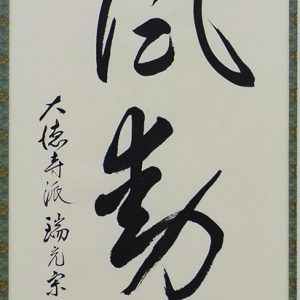 風動
大徳寺派瑞光宗